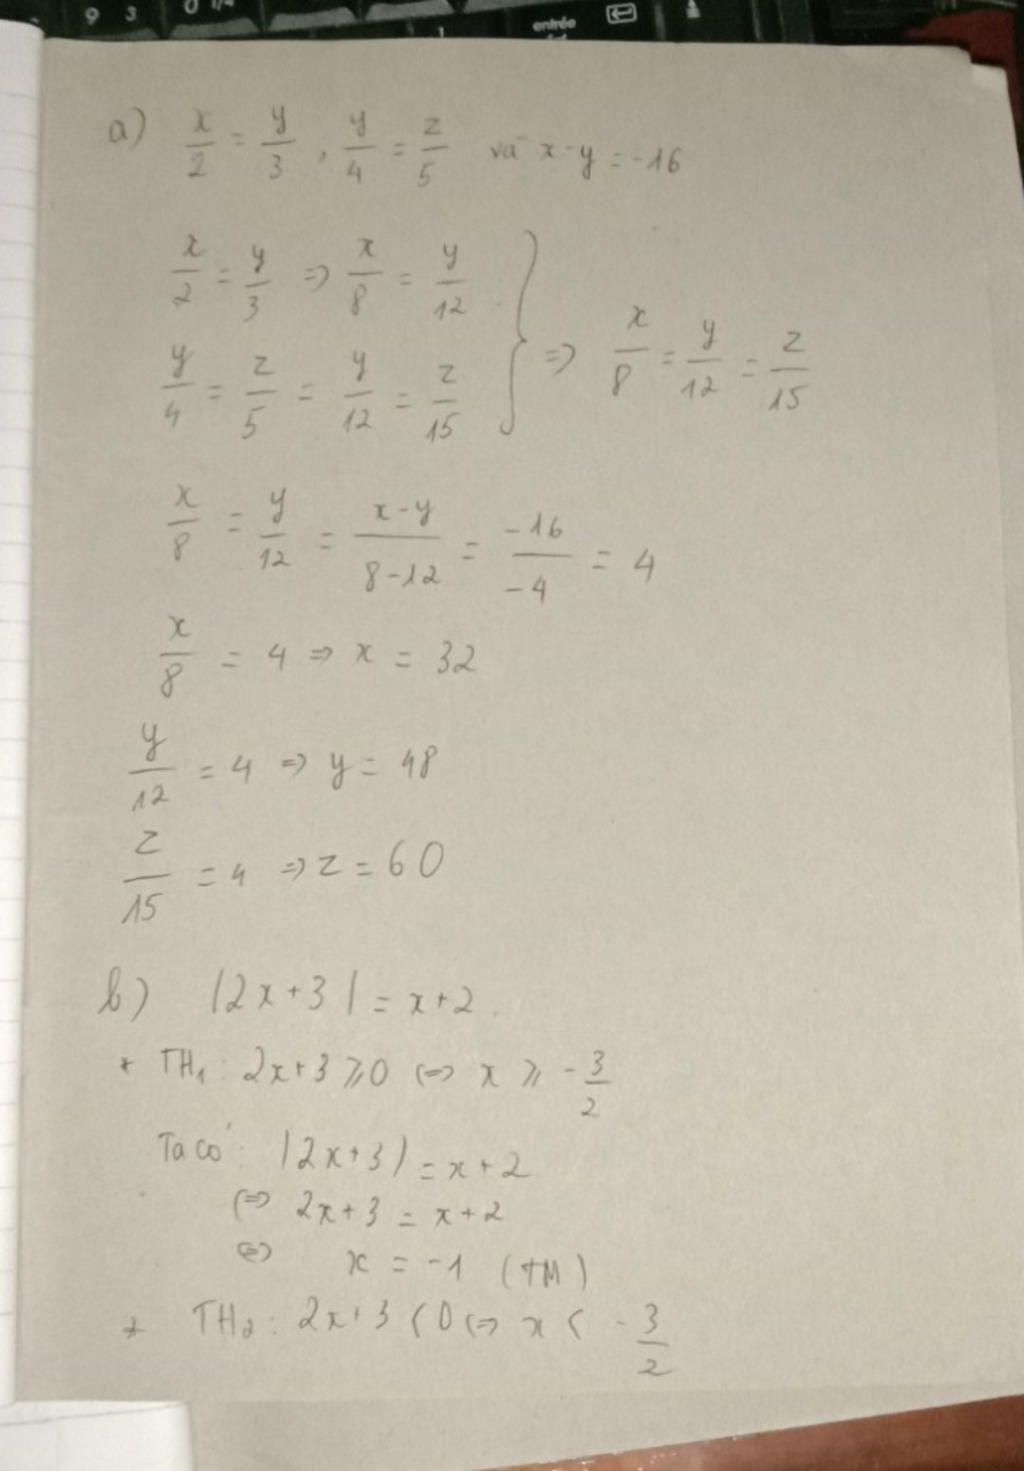 9 3 0
entrée
a) x/2 = y/3 , y/4 = z/5 và x-y = -16
x/2 = y/3 => x/8 = y/12
y/4 = z/5 = y/12 = z/15 } => x/8 = y/12 = z/15
x/8 = y/12 = x-y/8-12 = -16/-4 = 4
x/8 = 4 => x = 32
y/12 = 4 => y = 48
z/15 = 4 => z = 60
b) |2x+3| = x+2.
* TH₁: 2x+3 ⩾0 <=> x ⩾ -3/2
Ta có: |2x+3| = x+2
<=> 2x+3 = x+2
<=> x = -1 (TM)
* TH₂: 2x+3 <0 <=> x < -3/2